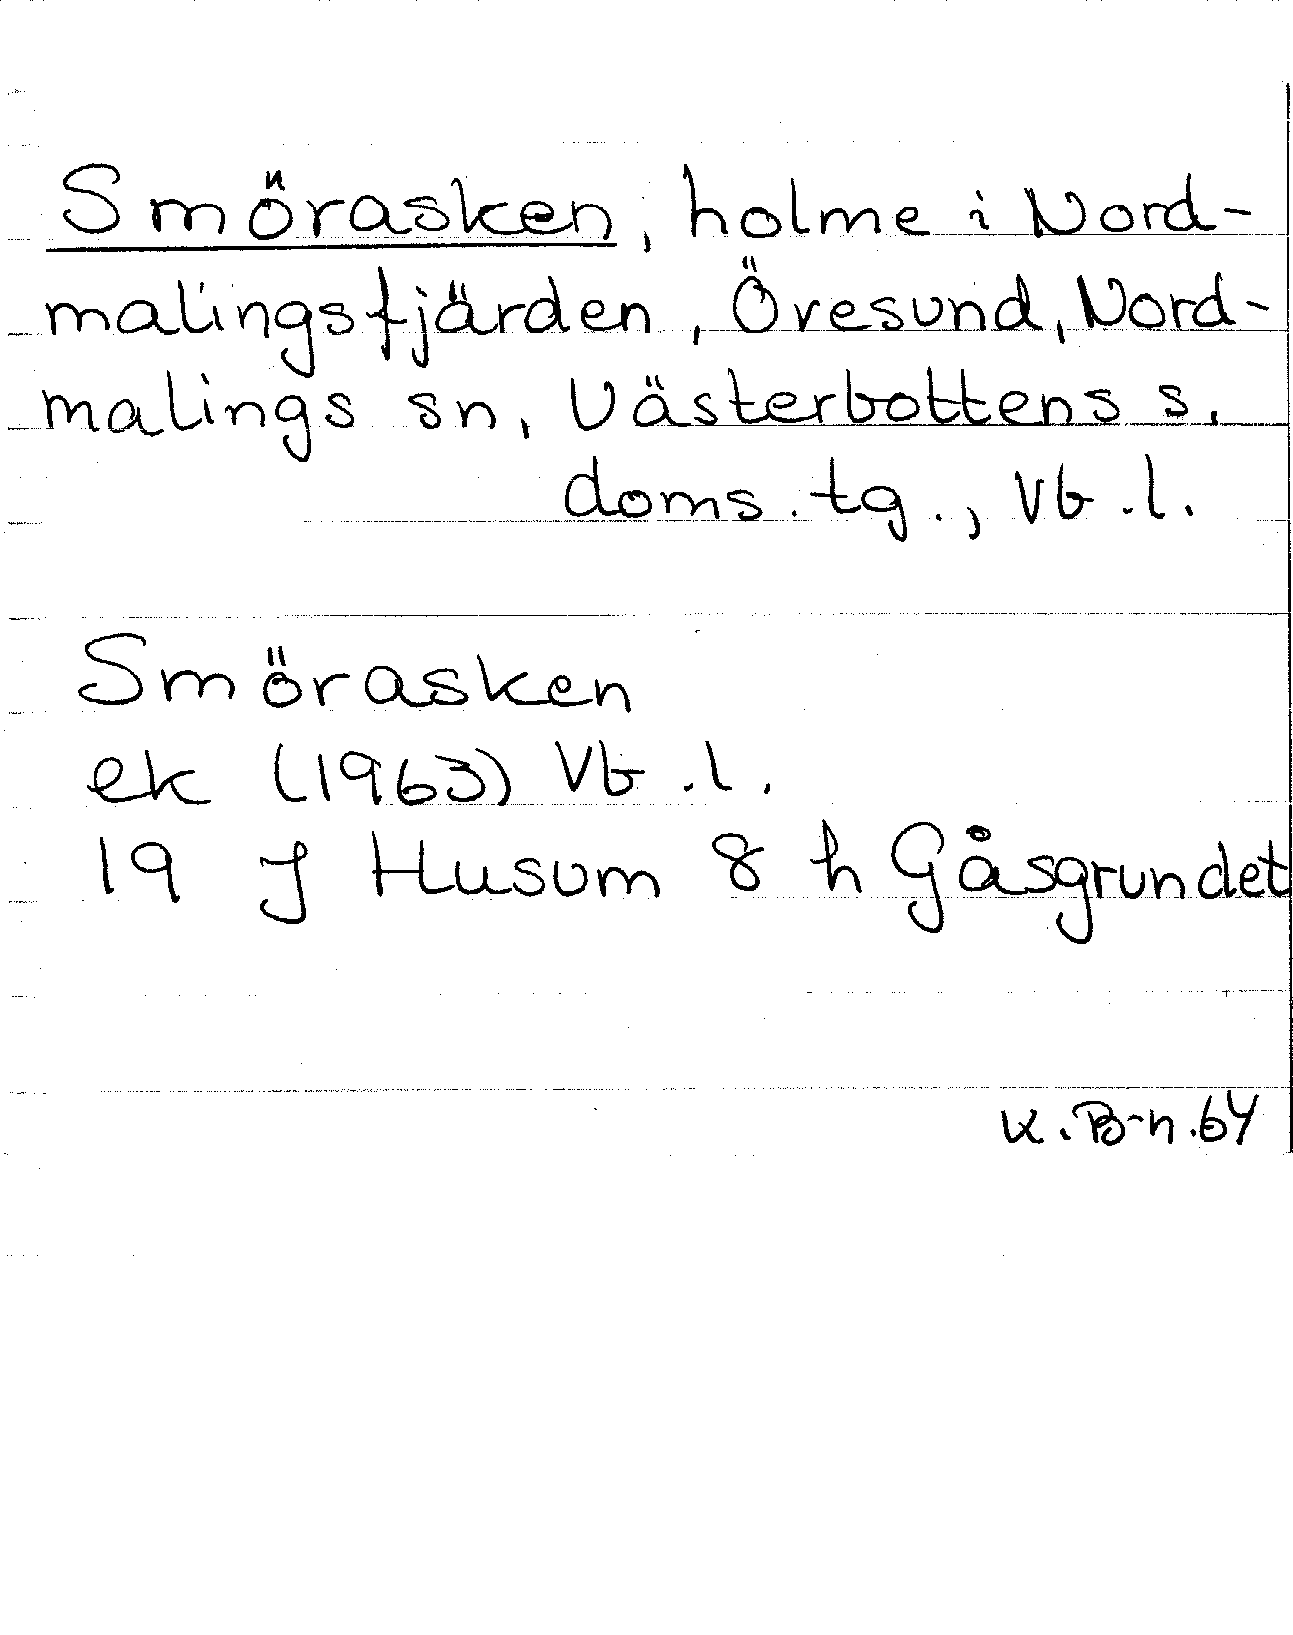 Smörasken, holme i Nord-
malingsfjärden, Öresund, Nord-
malings sn, Västerbottens s.
doms.tg., Vb.l.
Smörasken
ek (1963) Vb.l.
19 J Husum 8 h Gåsgrundet
K.B-n.64